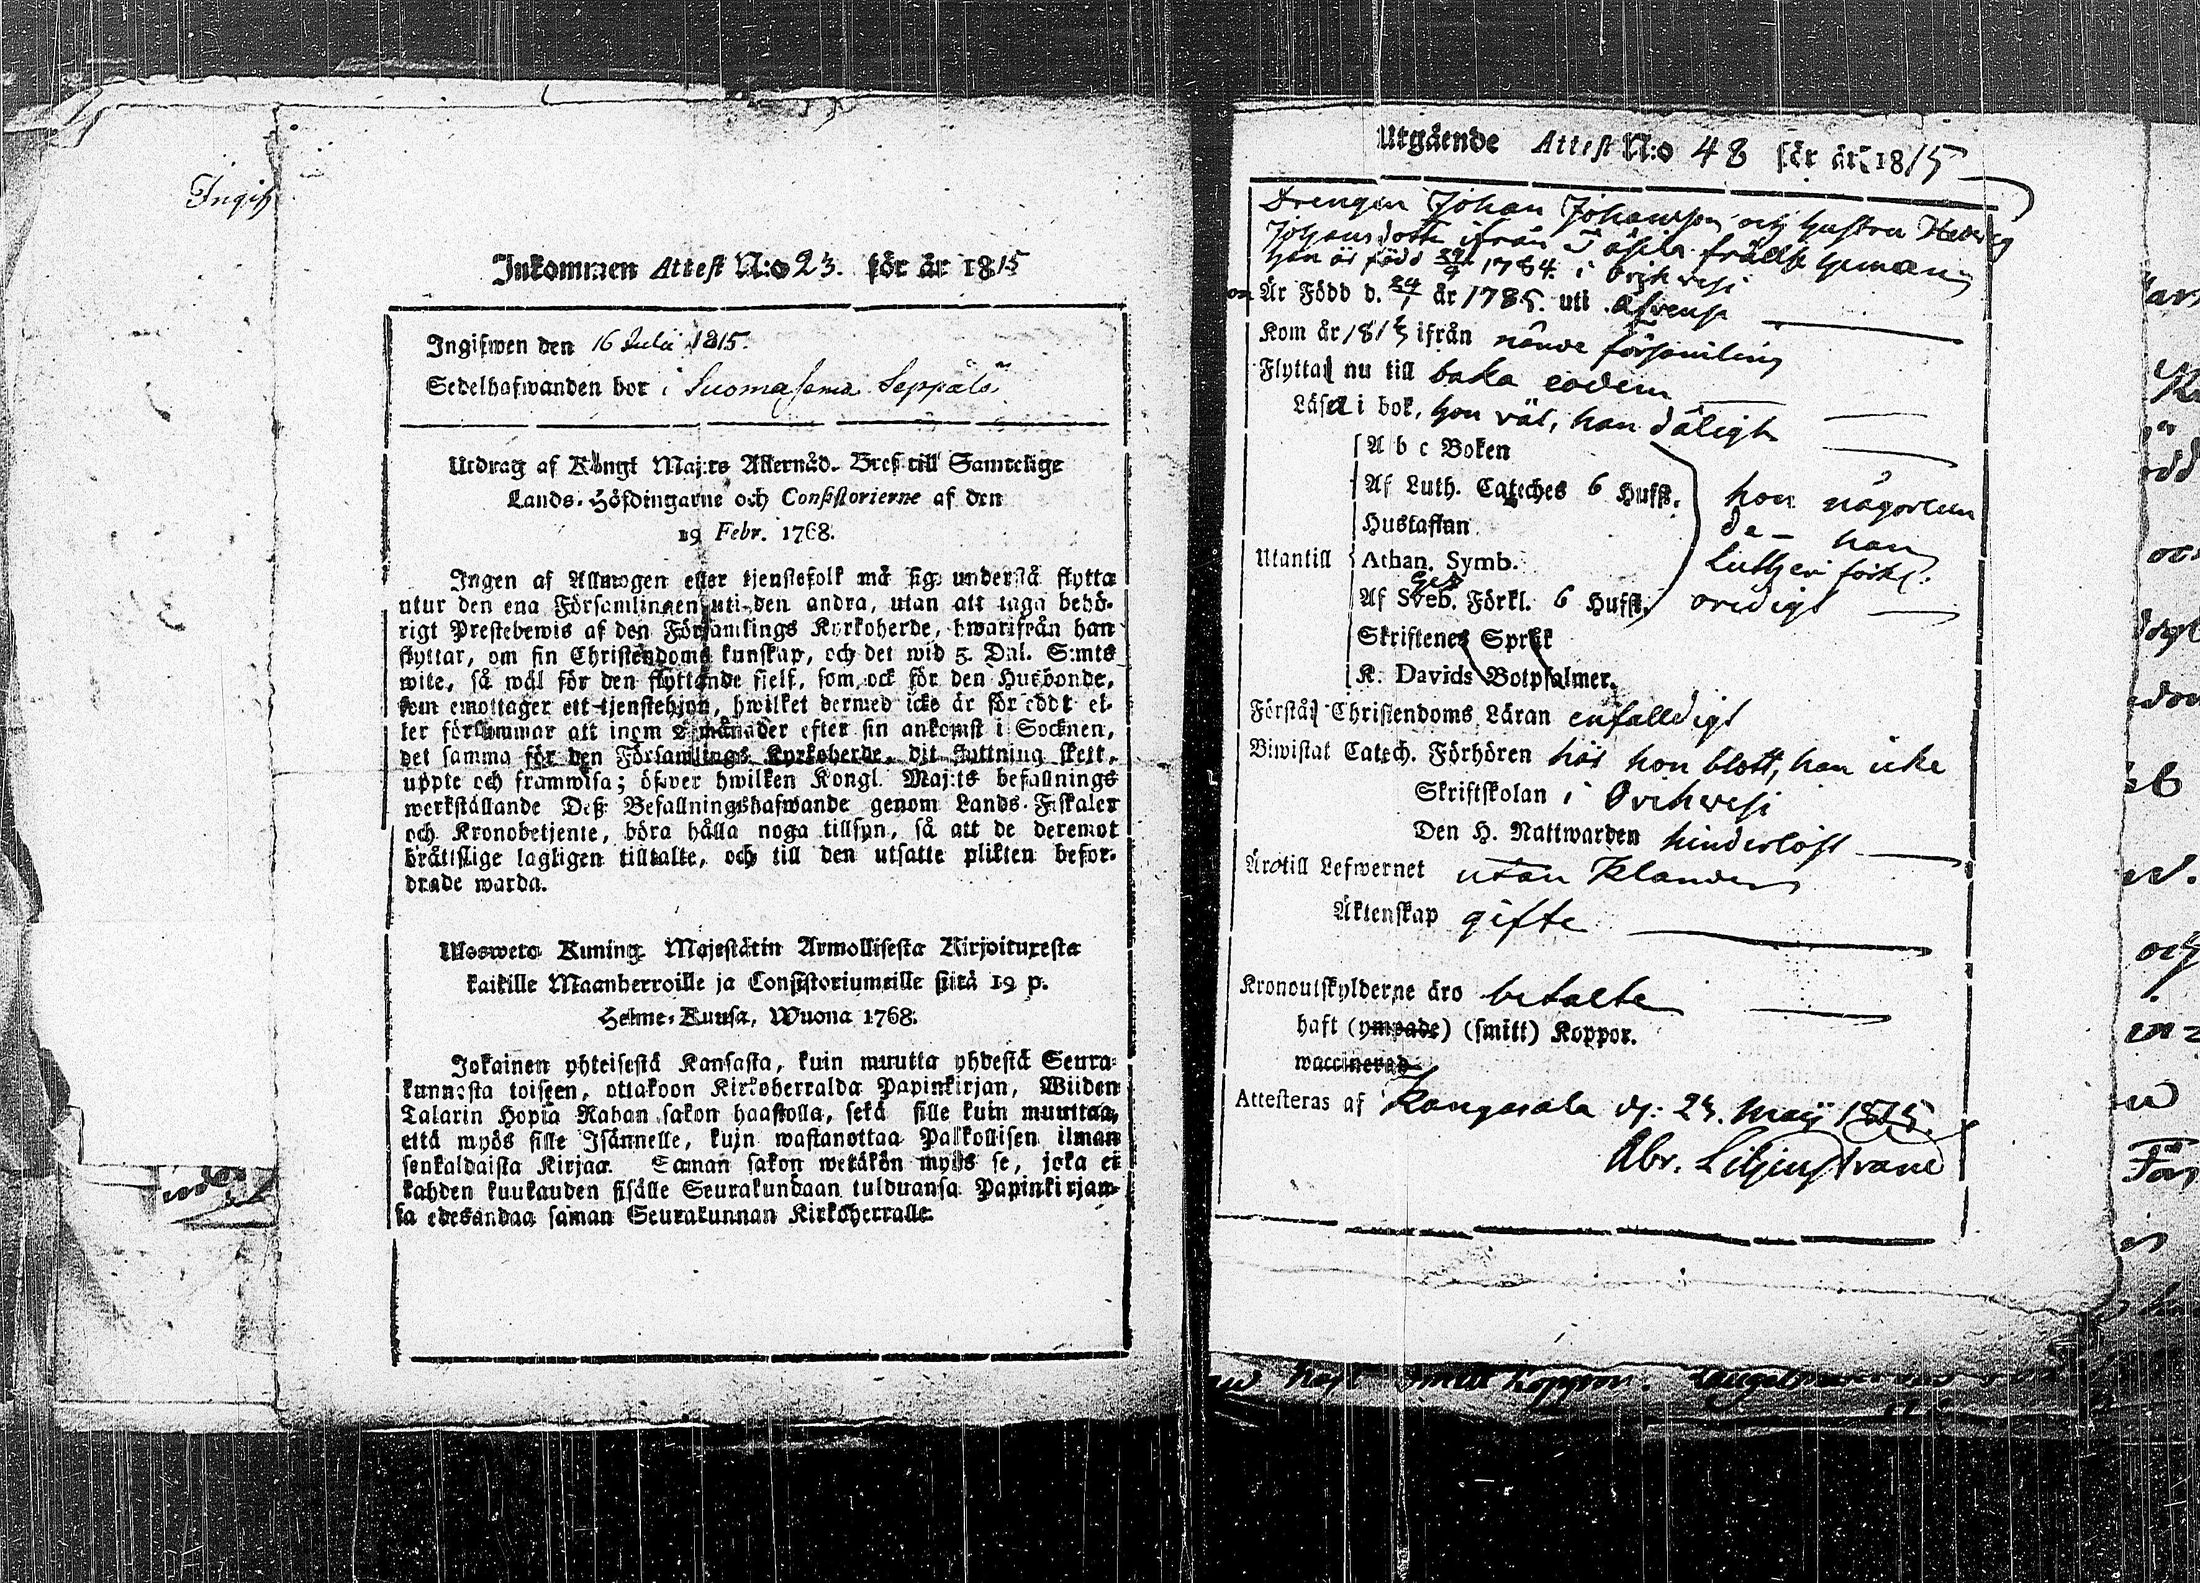 Ingifw
Inkommen Attest N:o 23. för år 1815
Ingifwen den 16 Julii 1815.
Sedelhafwanden bor i Suomasema Seppälä
Utdrag af Kongl Maj:ts Allernåd. Bref till Samtelige
Lands-Höfdingarne och Consistorierne af den
19 Febr. 1768.
Ingen af Allmogen eller tjenstefolk må sig understå flytta
utur den ena Församlingen uti den andra, utan att taga behö-
rigt Prestebewis af den Församlings Kyrkoherde, hwarifrån han
flyttar, om sin Christendoms kunskap, och det wid 5. Dal. S:mts
wite, så wäl för den flyttande sjelf, som ock för den Husbonde,
som emottager ett tjenstehjon, hwilket dermed icke är försedt el-
ler försummar att inom 2 månader efter sin ankomst i Socknen,
det samma för den Församlings Kyrkoherde, dit flyttning skett,
uppte och framwisa; öfwer hwilken Kongl. Maj:ts befallnings
werkställande Deß Befallningshafwande genom Lands-Fiskaler
och Kronobetjente, böra hålla noga tillsyn, så att de deremot
brättslige lagligen tilltalte, och till den utsatte plikten befor-
drade warda.
Ulosweto Kuning. Majestätin Armollisesta Kirjoituxesta
kaikille Maanherroille ja Consistoriumeille siitä 19 p.
Helme-Kuusa, Wuona 1768.
Jokainen yhteisestä Kansasta, kuin muutta yhdestä Seura-
kunnasta toiseen, ottakoon Kirkoherralda Papinkirjan, Wiiden
Talarin Hopia Rahan sakon haastolla, sekä sille kuin muuttaa,
että myös sille Isännelle, kuin wastanottaa Palkollisen ilman
senkaldaista Kirjaa. Saman sakon wetäkön myös se, joka ei
kahden kuukauden sisälle Seurakundaan tulduansa Papinkirjan-
sa edesandaa saman Seurakunnan Kirkoherralle.
Utgående Attest N:o 48 för år 1815
Drengen Johan Johansson och hustru Hedvig
Johansdotter ifrån frälse hemman
han är född 1784. i Orihwesi
on Är Född d. 24/1 år 1785. uti
Kom år 1813 ifrån nämde församling
Flyttar nu till baka eodem
Läsa i bok, hon väl, han dåligt
A b c Boken
Af Luth. Cateches 6 Hufst. hon någorlun
Hustaflan da - han
Utantill Athan. Symb. Lutheri förkl.
Af Sveb. Förkl. 6 Hufst. oredigt
Skriftenes Språk
K. Davids Botpsalmer.
Förstå Christendoms Läran enfalldigt
Biwistat Catech. Förhören här hon blott, han icke
Skriftskolan i Orihwesi
Den H. Nattwarden hinderlöst
Äro till Lefwernet utan klander
Äktenskap gifte
Kronoutskylderne äro betalte
haft (ympade) (smitt) Koppor.
waccinerad
Attesteras af Kangasala d: 23. Maij 1815.
Abr. Liljenstrand
haft smitt koppor.